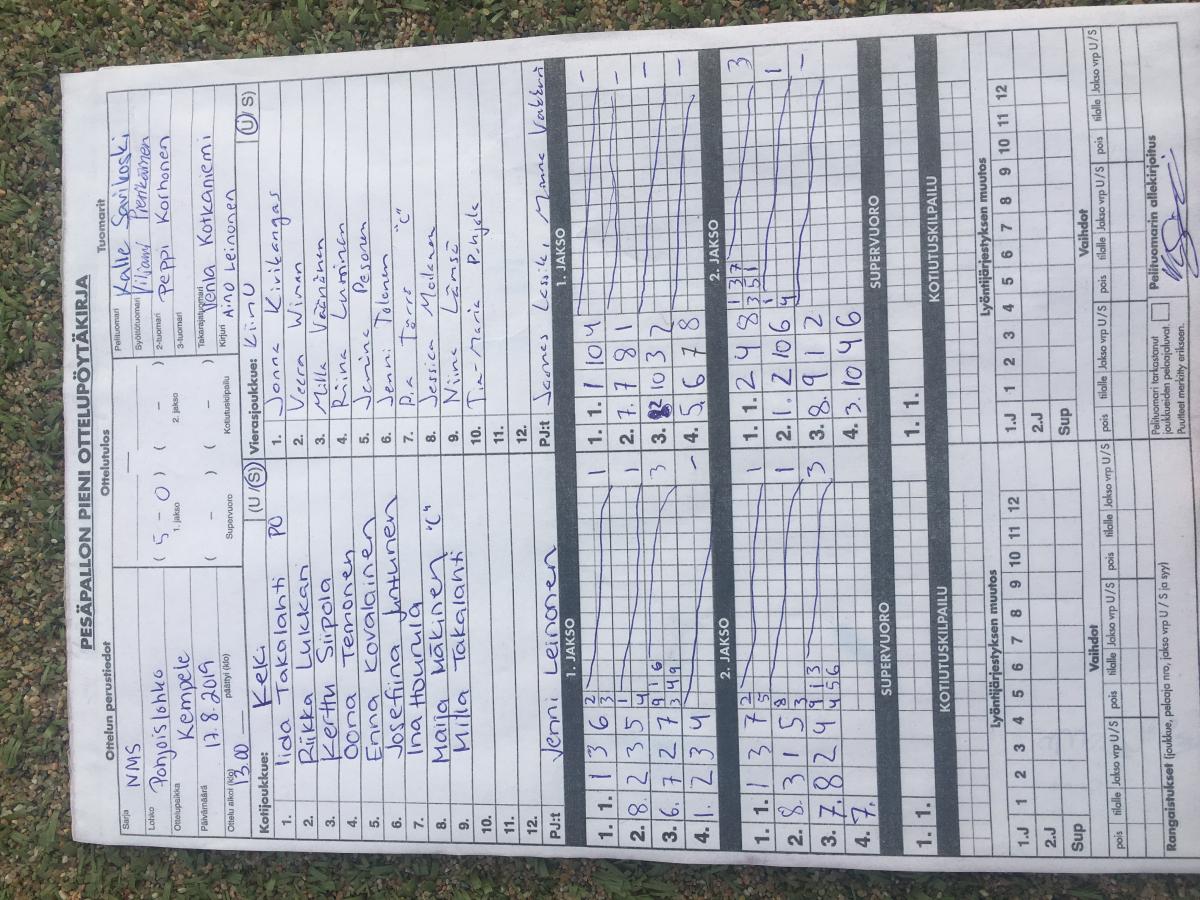 PESÄPALLON PIENI OTTELUPÖYTÄKIRJA
Ottelun perustiedot
Ottelutulos
Tuomarit
Sarja NMS
Lohko Pohjoislohko
Ottelupaikka Kempele
Päivämäärä 17.8.2019
Ottelu alkoi (klo) 13.00 päättyi (klo)
( 5 - 0 ) ( - )
1. jakso 2. jakso
( - ) ( - )
Supervuoro Kotiutuskilpailu
Pelituomari Kalle Savikoski
Syöttötuomari Viljami
2-tuomari Peppi Korhonen
3-tuomari
Takarajatuomari Venla Kotkaniemi
Kirjuri Aino Leinonen
Kotijoukkue: KeKi (U / S)
1. Iida Takalahti PO
2. Riikka Lukkari
3. Kerttu Siipola
4. Oona Temonen
5. Enna Kovalainen
6. Josefiina Juntunen
7. Ina Hournula
8. Maija Mäkinen "C"
9. Milla Takalahti
10.
11.
12.
PJ:t Jenni Leinonen
Vierasjoukkue: (U / S)
1. Jonna Kivikangas
2. Veera Wiman
3. Milla Väänänen
4. Riina
5. Jemina Pesonen
6. Jenni Tolonen
7. Pia Törrö "C"
8. Jessica
9. Niina Lämsä
10. Tia Maria Pohjola
11.
12.
PJ:t Joonas Minna
1. JAKSO
1. 1. 1 3 6 2 3 1
2. 8. 2 3 5 1 4 1
3. 6. 7 2 7 3
4. 1. 2 3 4 -
1. JAKSO
1. 1. 1 10 4 -
2. 7. 7 8 1 -
3. 10 3 2 -
4. 5. 6 7 8 -
2. JAKSO
1. 1. 1 3 7 2 5 1
2. 8. 3 1 5 8 3 1
3. 7. 8 2 4 3
4. 7.
2. JAKSO
1. 1. 2 4 8 1 3 7 3 5 1 3
2. 1. 2 10 6 1 4 1
3. 8. 9 1 2 -
4. 3. 10 4 6
SUPERVUORO
1. 1.
SUPERVUORO
1. 1.
KOTIUTUSKILPAILU
KOTIUTUSKILPAILU
Lyöntijärjestyksen muutos
1.J 1 2 3 4 5 6 7 8 9 10 11 12
2.J
Sup
Lyöntijärjestyksen muutos
1.J 1 2 3 4 5 6 7 8 9 10 11 12
2.J
Sup
Vaihdot
pois tilalle Jakso vrp U/S pois tilalle Jakso vrp U/S pois tilalle Jakso vrp U/S
Vaihdot
pois tilalle Jakso vrp U/S pois tilalle Jakso vrp U/S pois tilalle Jakso vrp U/S
Rangaistukset (joukkue, pelaaja nro, jakso vrp U / S ja syy)
Pelituomari tarkastanut
joukkueiden pelaajaluvat.
Puutteet merkitty erikseen.
Pelituomarin allekirjoitus